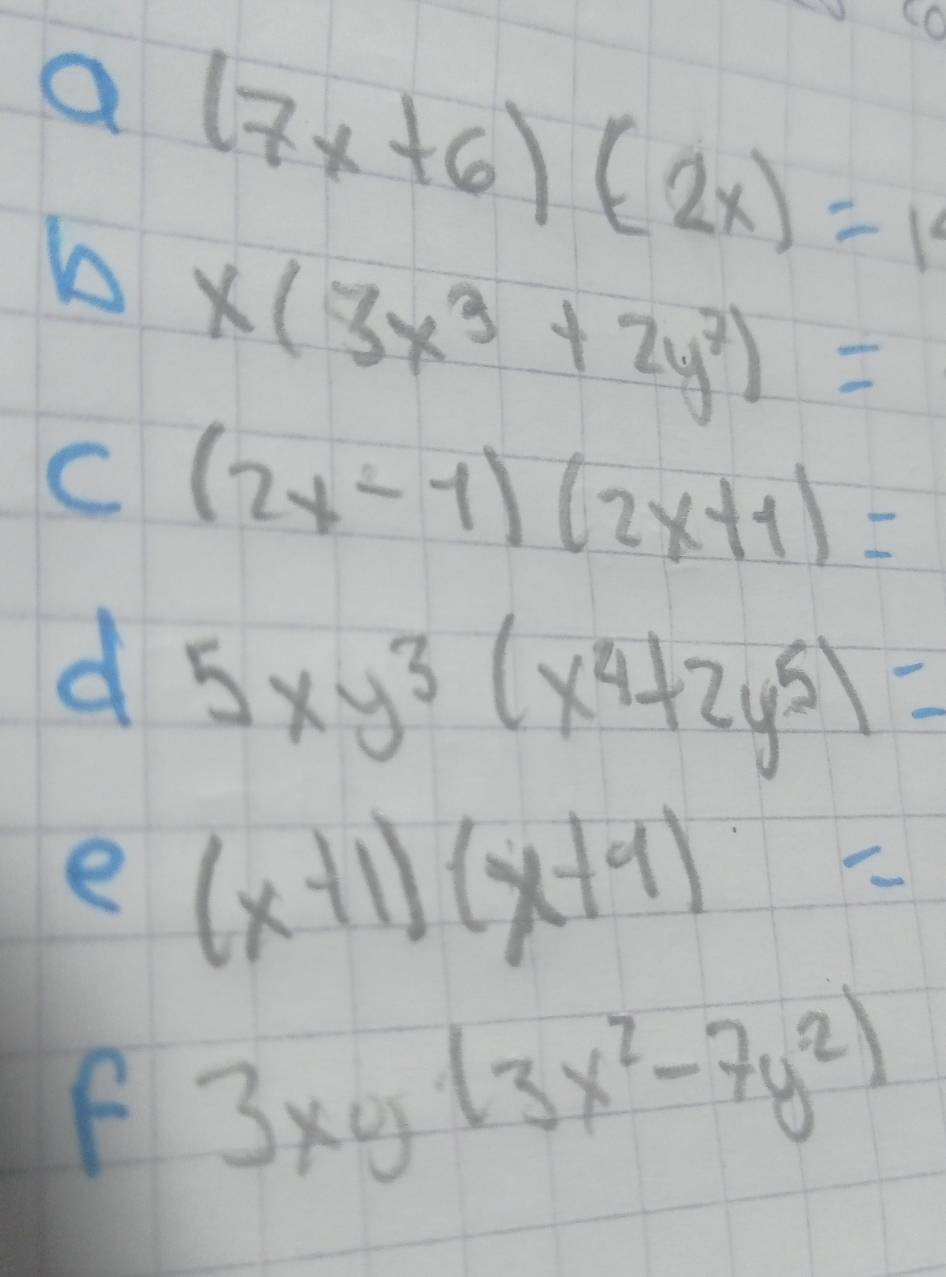 a (7x+6) (2x) = 1
b x(3x³ + 2y²) =
c (2x-1) (2x+1) =
d 5xy³ (x⁴+2y⁵) =
e (x+1) (x+1) =
f 3xy (3x²-7y²)